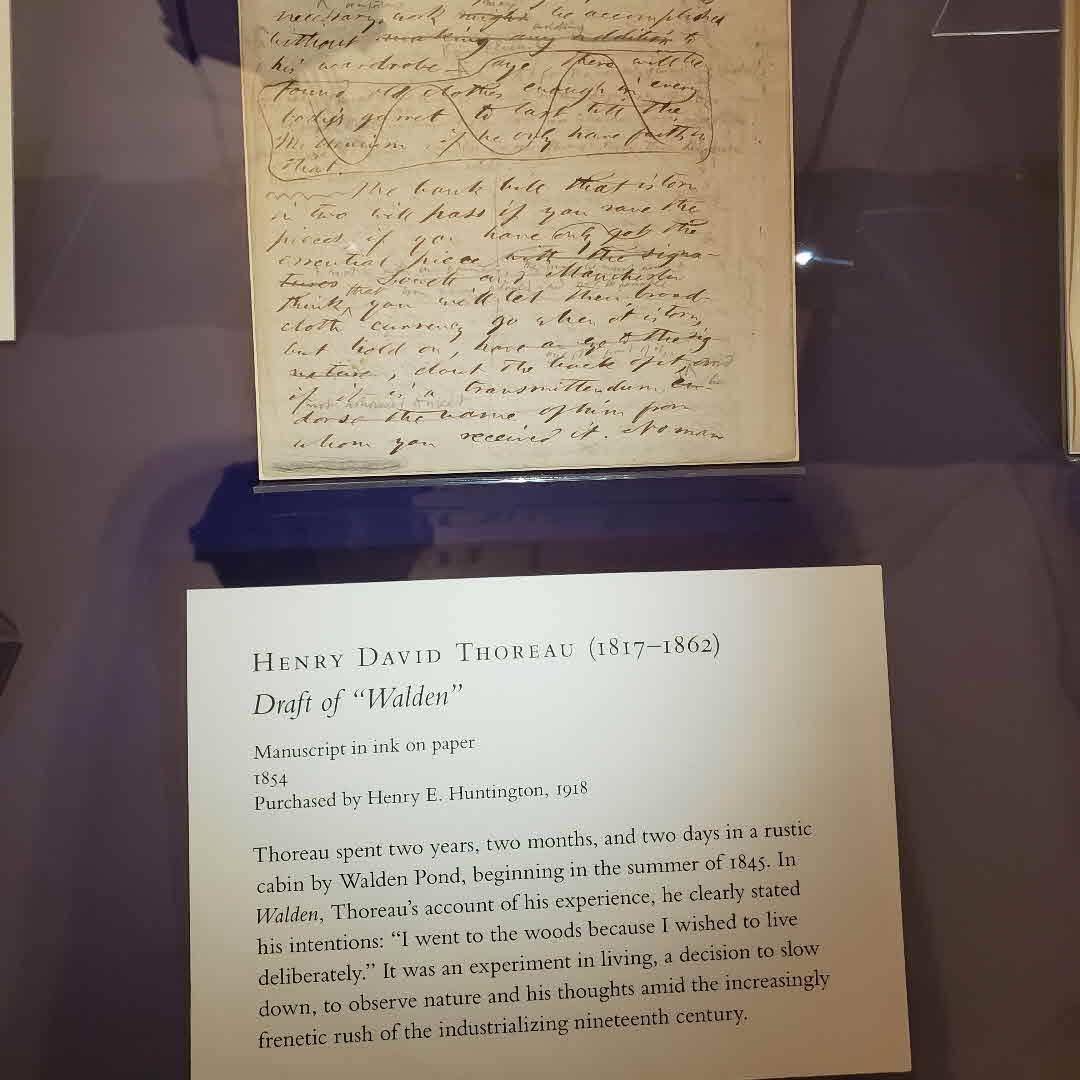 necessary work might be accomplished
without making any addition to
his wardrobe. I say, there will be
found old clothes enough in every
body's garret to last till the
Millennium, if he only have faith in
that.
The bank bill that is torn
in two will pass if you save the
pieces, if you have only got the
essential piece with the signa-
tures South and Manchester
think that you will let their broad-
cloth currency go when it is torn,
but hold on, have an eye to the sig
nature, clout the back of it, and
if it is a transmittendum, en-
dorse the name of him from
whom you received it. No man
HENRY DAVID THOREAU (1817–1862)
Draft of “Walden”
Manuscript in ink on paper
1854
Purchased by Henry E. Huntington, 1918
Thoreau spent two years, two months, and two days in a rustic
cabin by Walden Pond, beginning in the summer of 1845. In
Walden, Thoreau’s account of his experience, he clearly stated
his intentions: “I went to the woods because I wished to live
deliberately.” It was an experiment in living, a decision to slow
down, to observe nature and his thoughts amid the increasingly
frenetic rush of the industrializing nineteenth century.